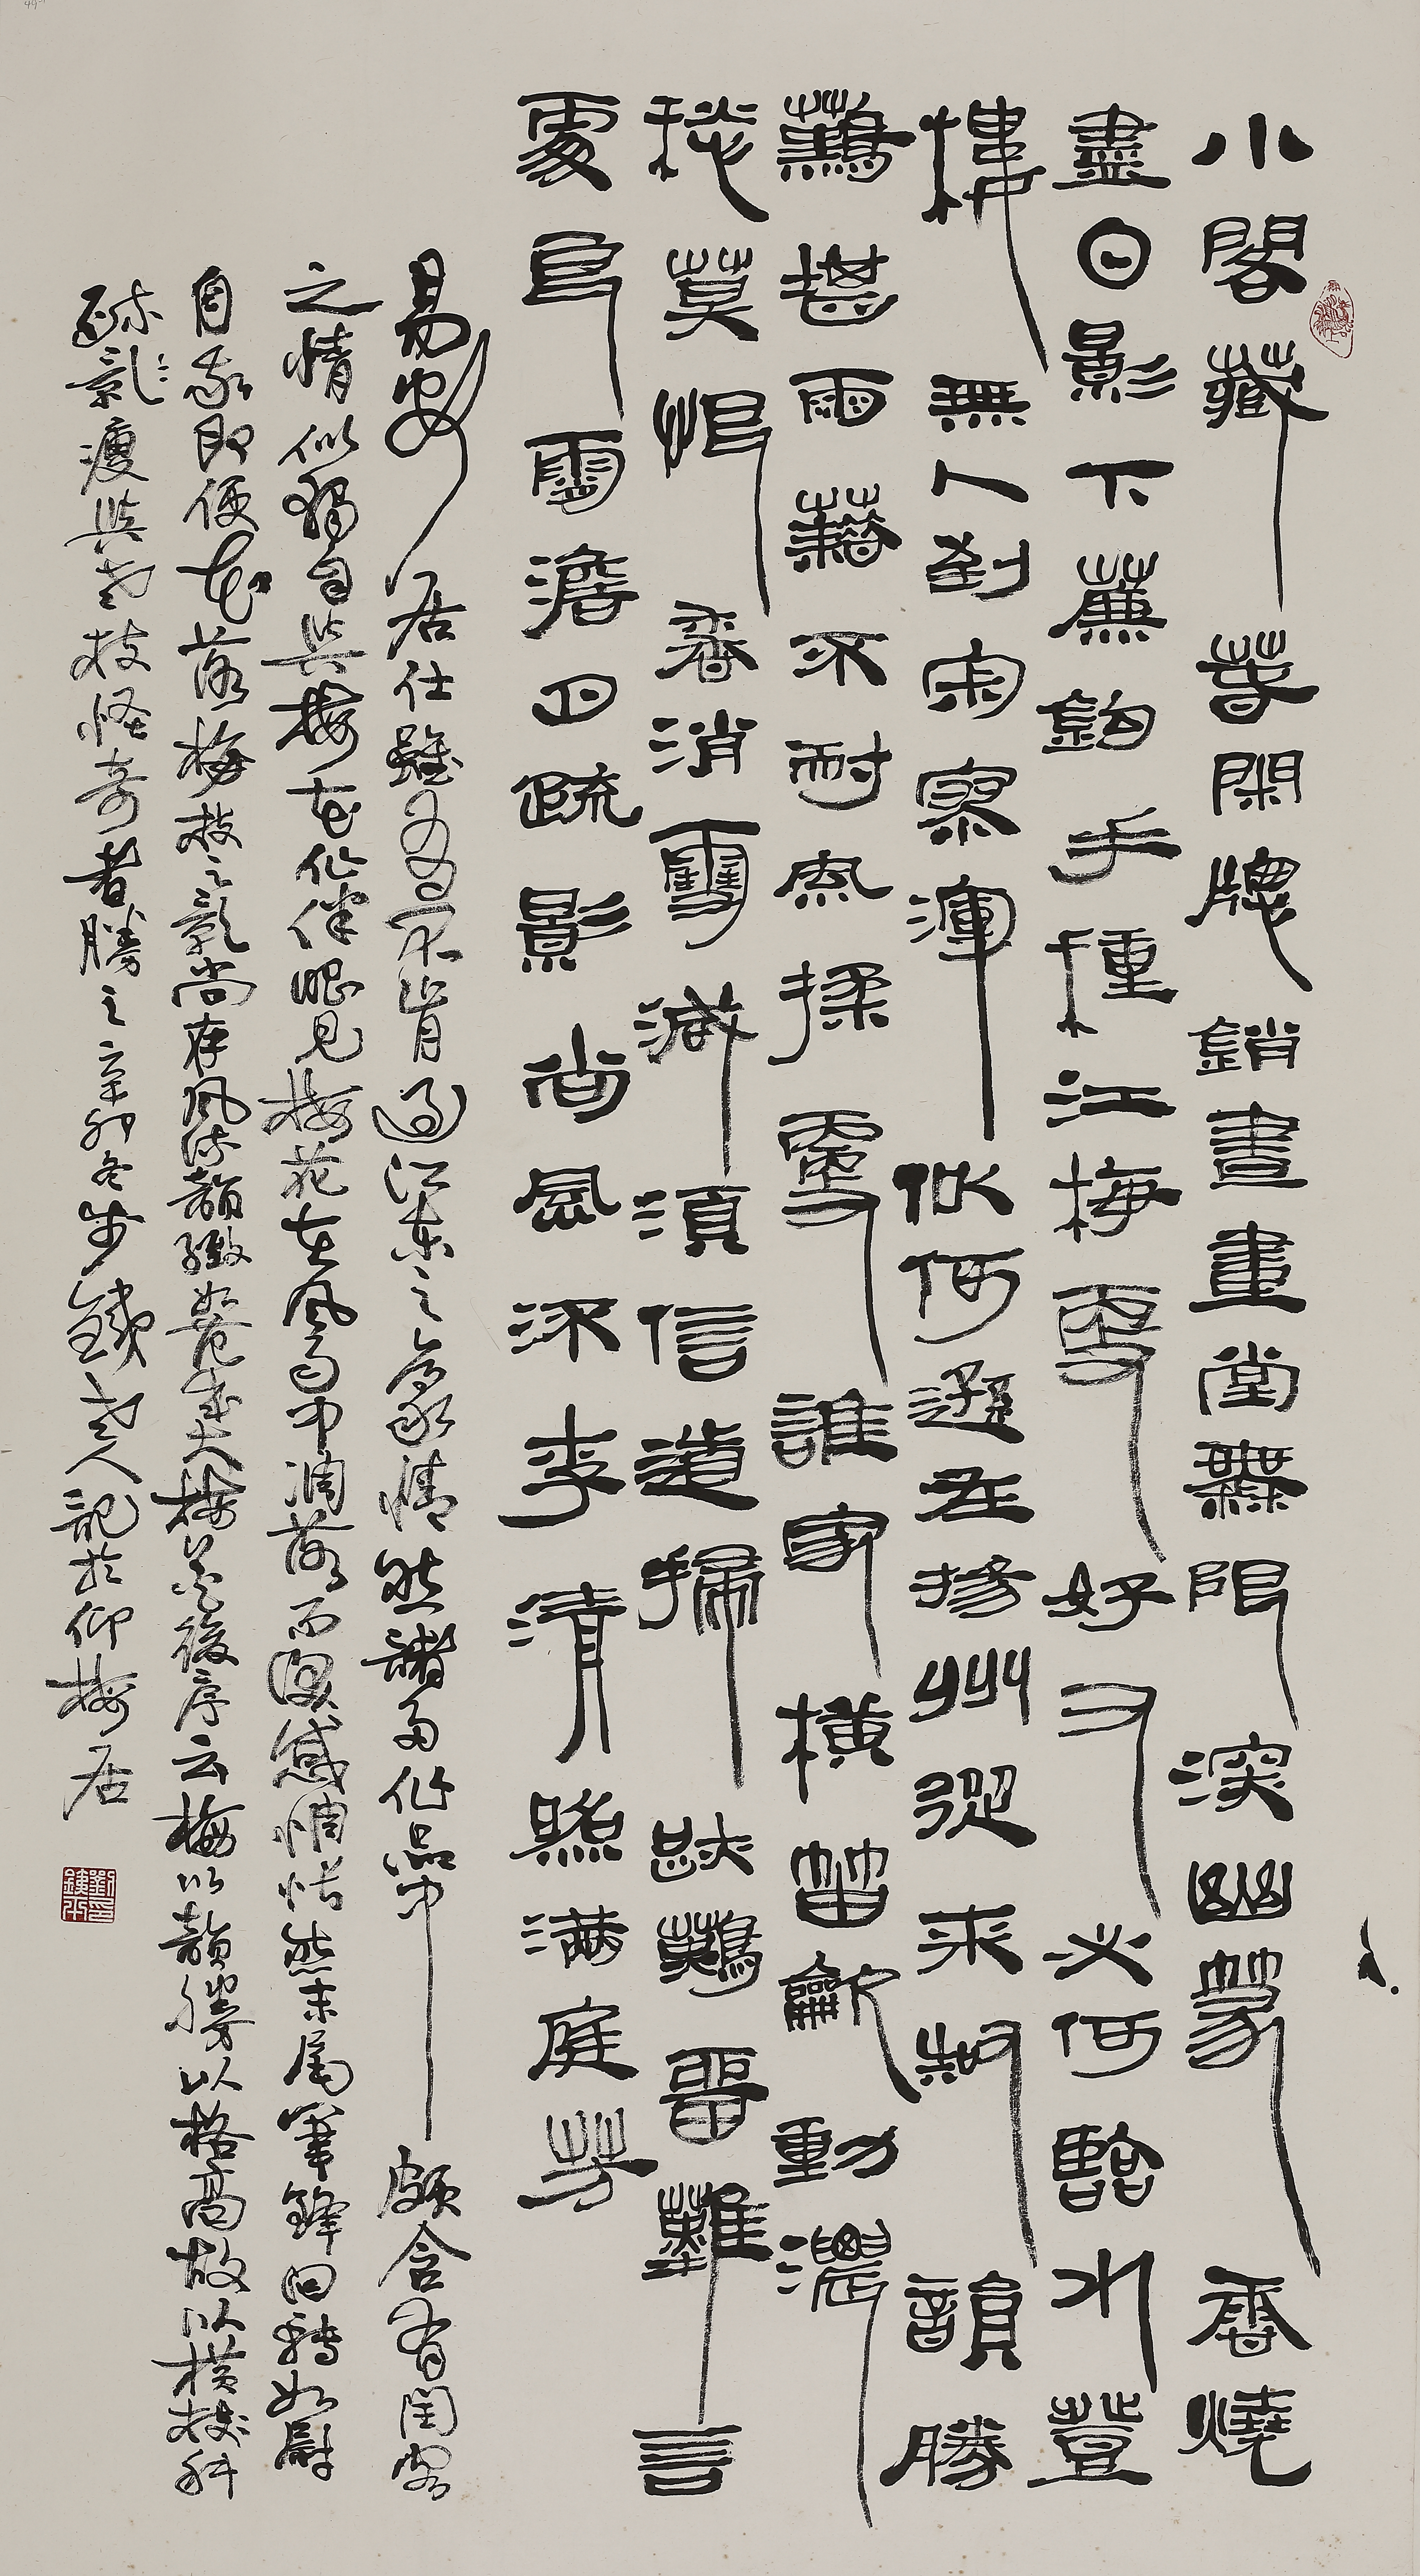 小閣藏春閑牕鎖晝畫堂無限深幽篆香燒
盡日影下簾鈎手種江梅更好又必何臨水登
樓無人到寂寥渾似何遜在揚州從來知韻勝
難堪雨藉不耐風揉更誰家橫笛龡動濃
愁莫恨香消雪減須信道掃跡難留難言
處良宵澹月疏影尚風流李清照滿庭芳
易安居仕雖有不肯過江東之豪情然諸多作品中頗含有閨密
之情似獨自與梅花作伴眼見梅花在風雨中凋落而深感惆悵然末尾筆鋒回轉如慰
自家即便花落梅枝之影尚存風流韻緻如范成大梅譜後序云梅以韻勝以格高故以橫枝斜
疏影瘦與老枝怪奇者勝之辛卯冬步鐵老人記於仰梅居
劉印鐵平